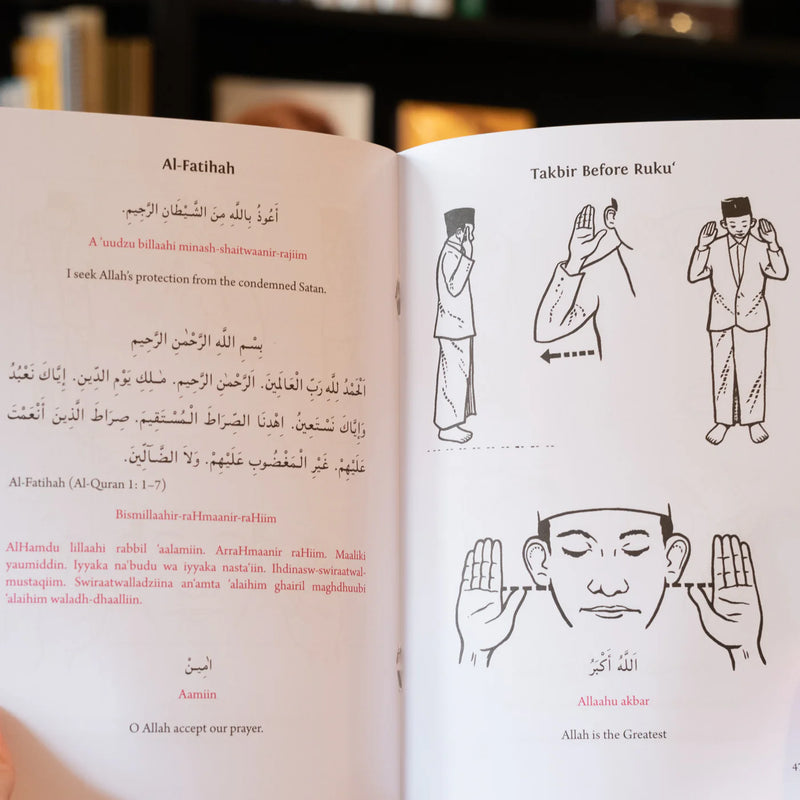 Al-Fatihah
أَعُوذُ بِاللَّهِ مِنَ الشَّيْطَانِ الرَّجِيمِ.
A 'uudzu billaahi minash-shaitwaanir-rajiim
I seek Allah's protection from the condemned Satan.
بِسْمِ اللَّهِ الرَّحْمٰنِ الرَّحِيمِ
اَلْحَمْدُ لِلَّهِ رَبِّ الْعَالَمِينَ. اَلرَّحْمٰنِ الرَّحِيمِ. مٰلِكِ يَوْمِ الدِّينِ. إِيَّاكَ نَعْبُدُ
وَإِيَّاكَ نَسْتَعِينُ. اِهْدِنَا الصِّرَاطَ الْمُسْتَقِيمَ. صِرَاطَ الَّذِينَ أَنْعَمْتَ
عَلَيْهِمْ. غَيْرِ الْمَغْضُوبِ عَلَيْهِمْ. وَلاَ الضَّآلِّينَ.
Al-Fatihah (Al-Quran 1: 1–7)
Bismillaahir-raHmaanir-raHiim
AlHamdu lillaahi rabbil 'aalamiin. ArraHmaanir raHiim. Maaliki
yaumiddin. Iyyaka na'budu wa iyyaka nasta'iin. Ihdinasw-swiraatwal-
mustaqiim. Swiraatwalladziina an'amta 'alaihim ghairil maghdhuubi
'alaihim waladh-dhaalliin.
اٰمِينْ
Aamiin
O Allah accept our prayer.
Takbir Before Ruku‘
اَللَّهُ أَكْبَرُ
Allaahu akbar
Allah is the Greatest